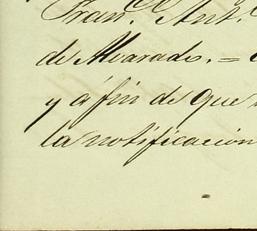 Fran.co Ant.
de Alvarado. =
y á fin de que
la notificación